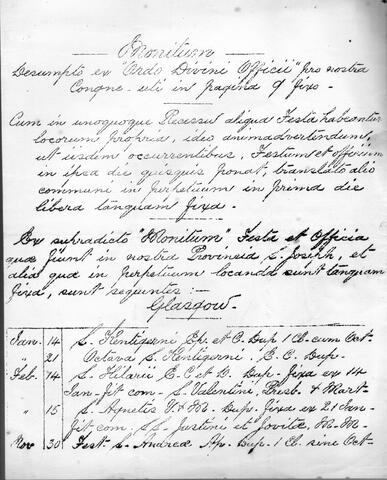 Monitum
Desumpto ex "Ordo Divini Officii" pro nostra
Congne- uti in pagina 9 fixo-
Cum in unoquoque Recessus aliqua Festa habeantur
locorum propria, ideo animadvertendum,
ut iisdem occurrentibus, Festum et officium
in ipsa die quisque ponat, translato alio
communi in perpetuum in prima die
libera tanquam fixa.
Ex supradicto "Monitum" Festa et Officia
quæ fiunt in nostra Provincia S. Joseph, et
alia quæ in perpetuum locanda sunt tanquam
fixa, sunt sequentes:-
Glasgow-
Jan- 14 S. Kentigerni Ep. et C. Dup 1 Cl- cum Oct-
" 21 Octava S. Kentigerni- E. C. Dup-
Feb- 14 S. Hilarii E. C et D. Dup- fixa ex 14
Jan- fit com- S. Valentini, Presb. & Mart-
" 15 S. Agnetis V & M. Dup. fixa ex 21 Jan-
fit com. SS. Justini et Jovitæ, M. M-
Nov 30 Fest. S. Andreæ Ap. Dup. 1 Cl. sine Oct-